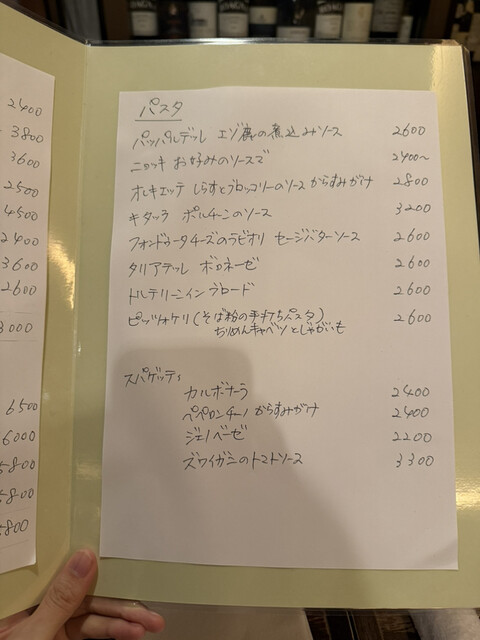 2400
3800
3600
2500
4500
2400
3600
2600
3000
6500
6000
5800
5800
5800
パスタ
パッパルデッレ エゾ鹿の煮込みソース 2600
ニョッキ お好みのソースで 2400〜
オレキエッテ しらすとブロッコリーのソース からすみがけ 2800
キタッラ ポルチーニのソース 3200
フォンドゥータチーズのラビオリ セージバターソース 2600
タリアテッレ ボロネーゼ 2600
トルテリーニ イン ブロード 2600
ピッツォケリ(そば粉の手打ちパスタ) 2600
ちりめんキャベツとじゃがいも
スパゲッティ
カルボナーラ 2400
ペペロンチーノ からすみがけ 2400
ジェノベーゼ 2200
ズワイガニのトマトソース 3300